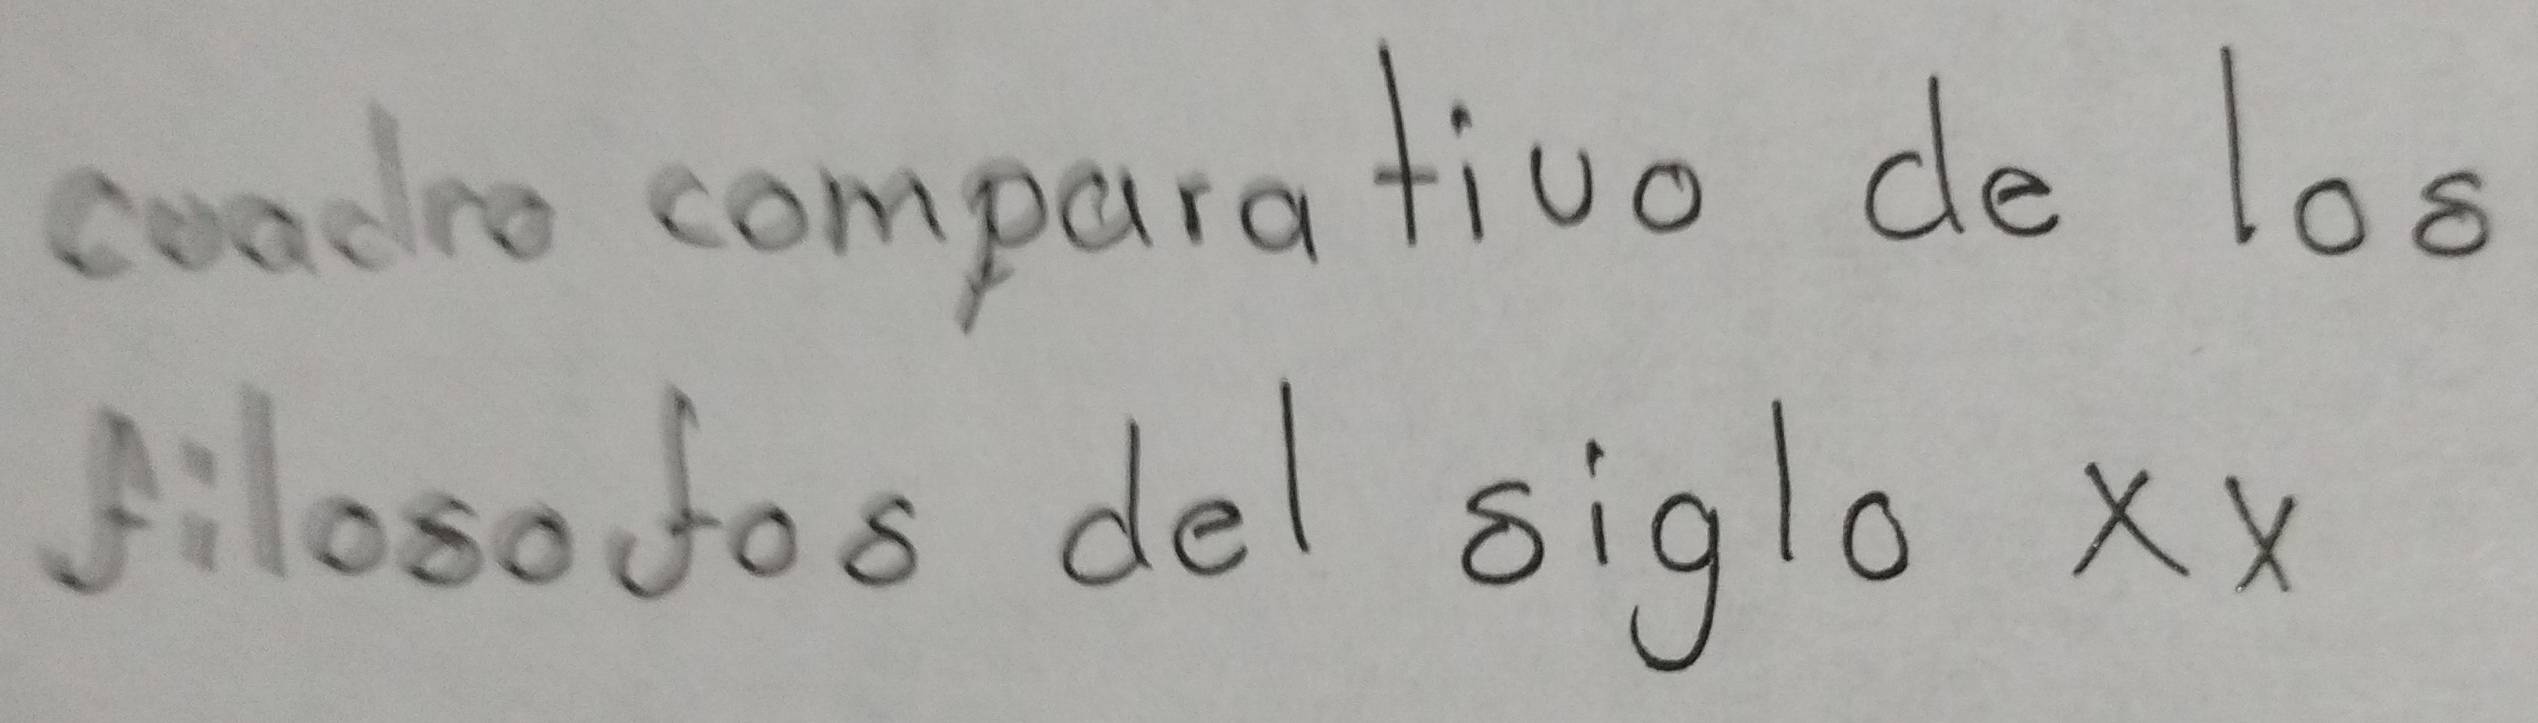 cuadro comparativo de los
filosofos del siglo xx